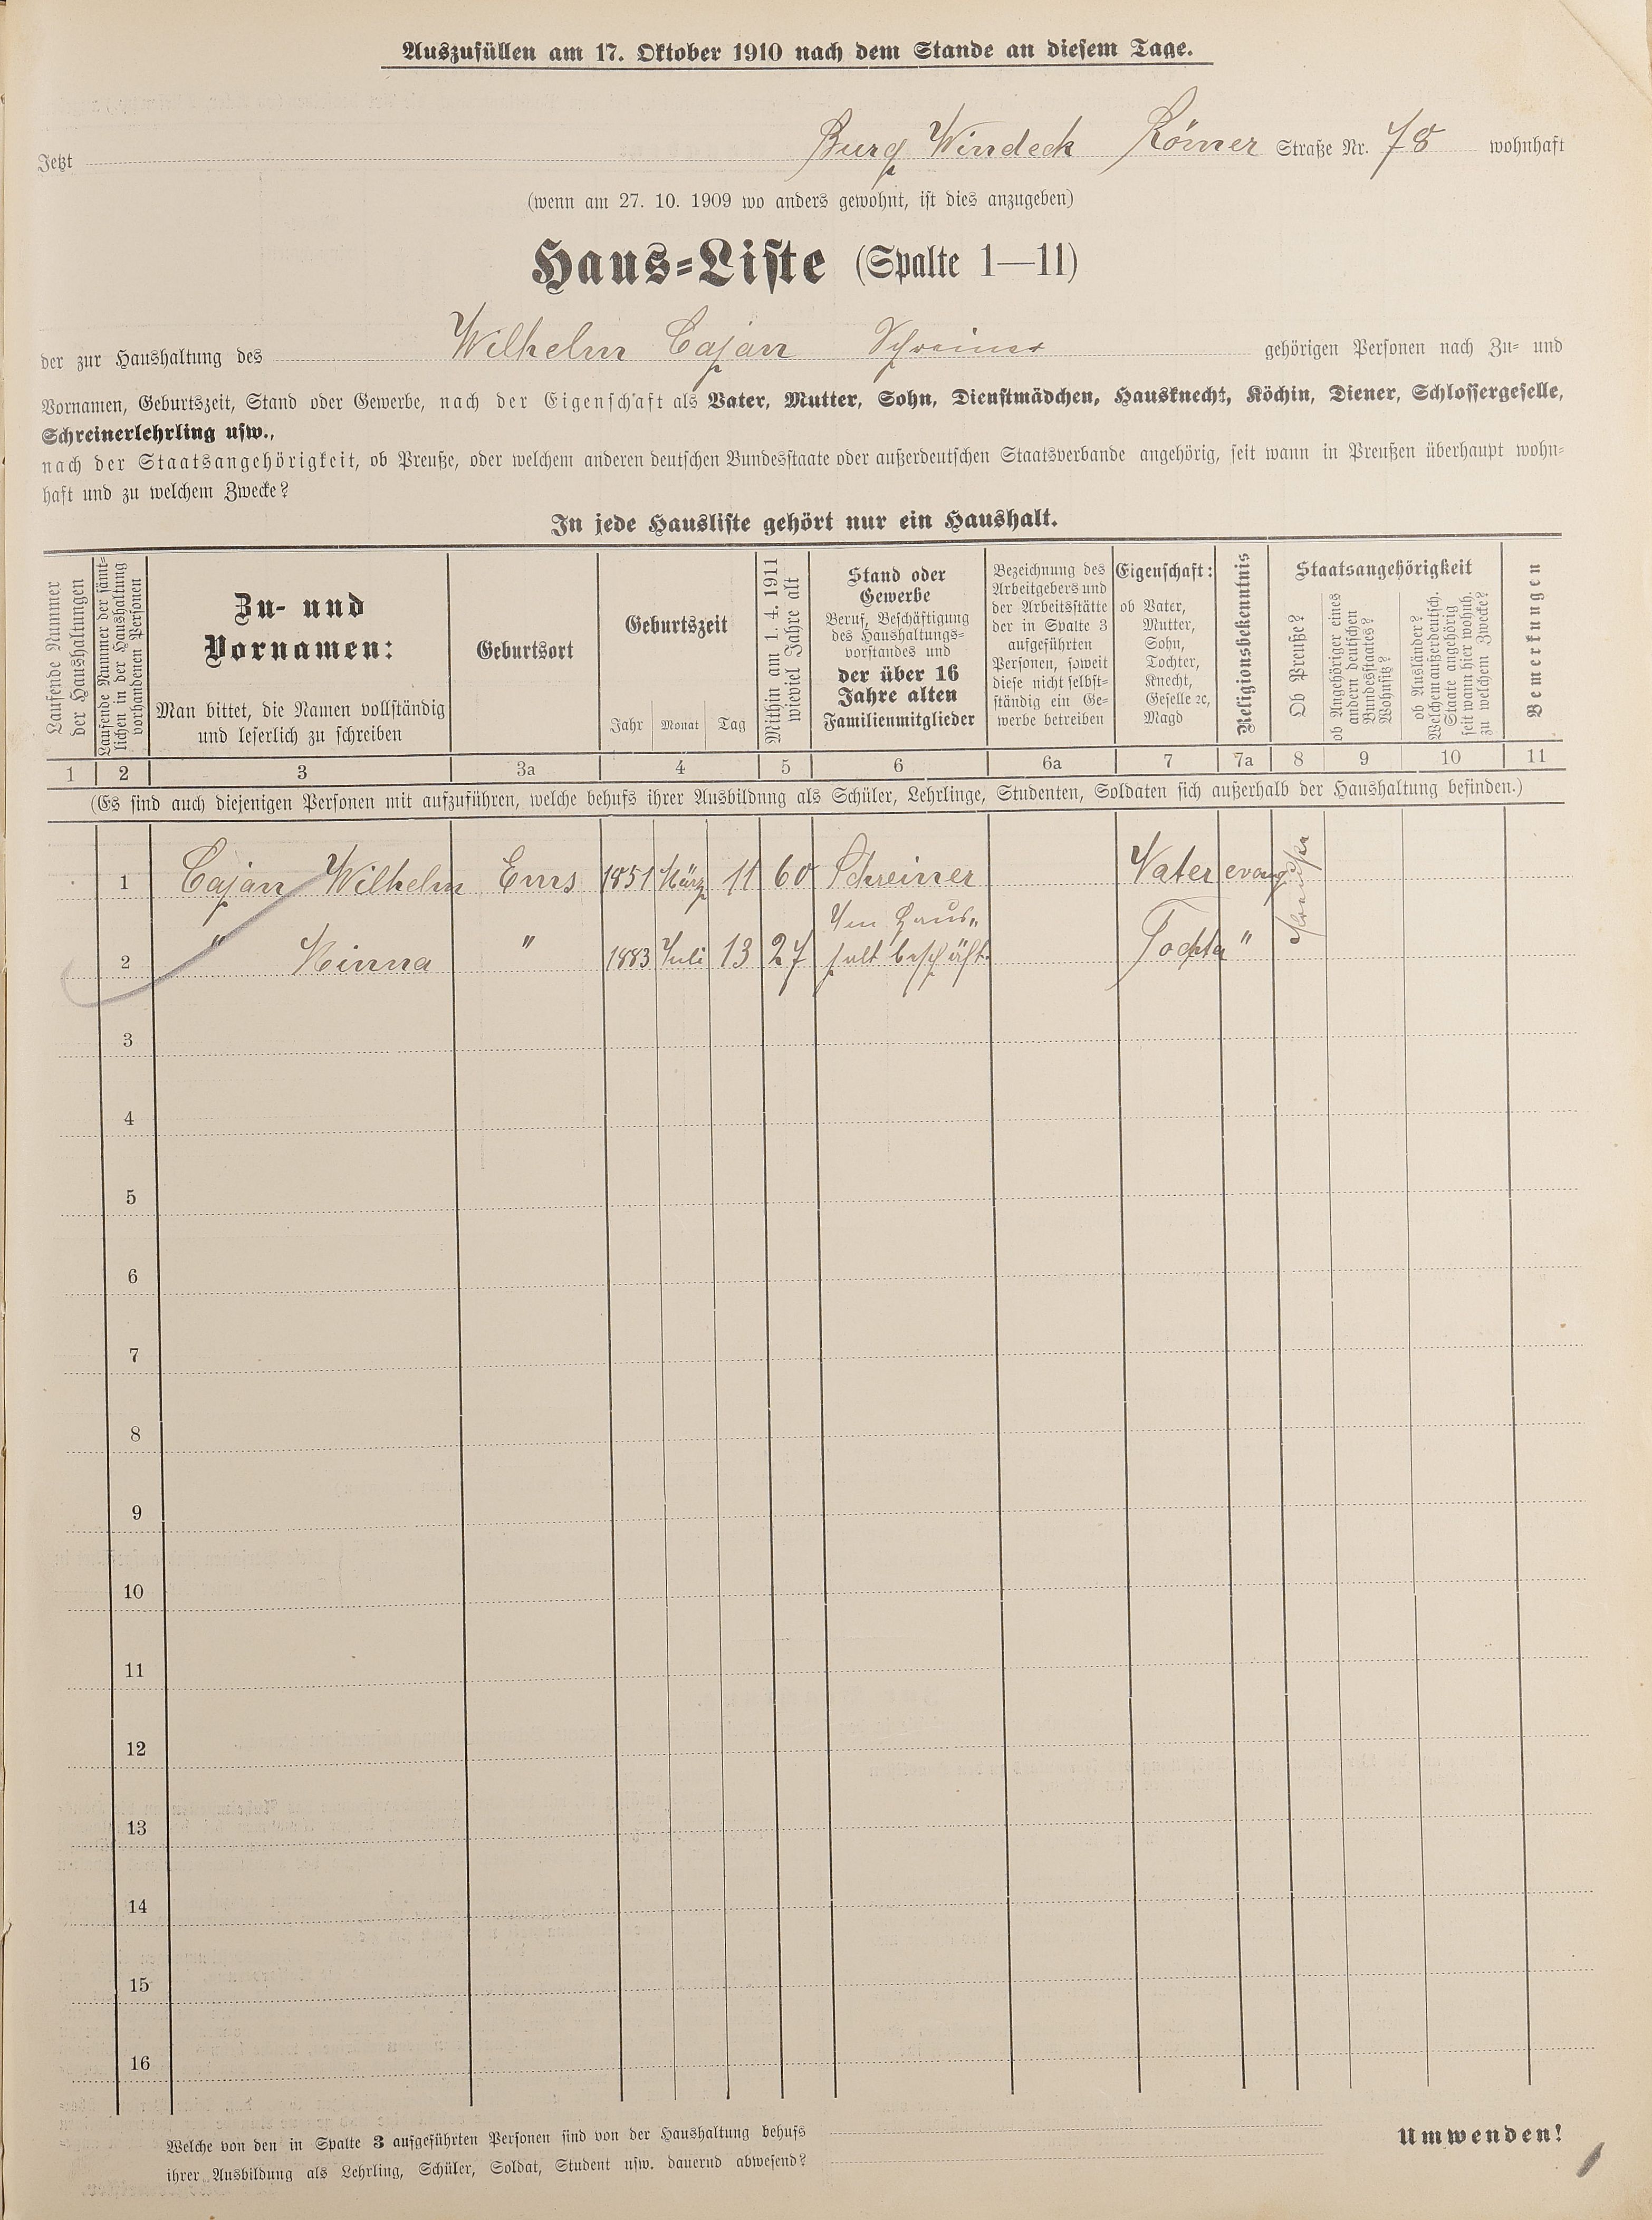 Auszufüllen am 17. Oktober 1910 nach dem Stande an diesem Tage.
Jetzt Burg Windeck Römer Straße Nr. 78 wohnhaft
(wenn am 27. 10. 1909 wo anders gewohnt, ist dies anzugeben)
Haus-Liste (Spalte 1—11)
der zur Haushaltung des Wilhelm Cajan Schreiner gehörigen Personen nach Zu- und
Vornamen, Geburtszeit, Stand oder Gewerbe, nach der Eigenschaft als Vater, Mutter, Sohn, Dienstmädchen, Hausknecht, Köchin, Diener, Schlossergeselle,
Schreinerlehrling usw.,
nach der Staatsangehörigkeit, ob Preuße, oder welchem anderen deutschen Bundesstaate oder außerdeutschen Staatsverbande angehörig, seit wann in Preußen überhaupt wohn-
haft und zu welchem Zwecke?
In jede Hausliste gehört nur ein Haushalt.
Laufende Nummer
der Haushaltungen
Laufende Nummer der sämt-
lichen in der Haushaltung
vorhandenen Personen
Zu- und
Vornamen:
Man bittet, die Namen vollständig
und leserlich zu schreiben
Geburtsort
Geburtszeit
Jahr Monat Tag
Mithin am 1. 4. 1911
wieviel Jahre alt
Stand oder
Gewerbe
Beruf, Beschäftigung
des Haushaltungs-
vorstandes und
der über 16
Jahre alten
Familienmitglieder
Bezeichnung des
Arbeitgebers und
der Arbeitsstätte
der in Spalte 3
aufgeführten
Personen, soweit
diese nicht selbst-
ständig ein Ge-
werbe betreiben
Eigenschaft:
ob Vater,
Mutter,
Sohn,
Tochter,
Knecht,
Geselle ꝛc,
Magd
Religionsbekenntnis
Staatsangehörigkeit
Ob Preuße?
ob Angehöriger eines
andern deutschen
Bundesstaates?
Wohnsitz?
ob Ausländer?
Welchem außerdeutsch.
Staate angehörig
seit wann hier wohnh.
zu welchem Zwecke?
Bemerkungen
1 2 3 3a 4 5 6 6a 7 7a 8 9 10 11
(Es sind auch diejenigen Personen mit aufzuführen, welche behufs ihrer Ausbildung als Schüler, Lehrlinge, Studenten, Soldaten sich außerhalb der Haushaltung befinden.)
1 Cajan Wilhelm Ems 1851 März 11 60 Schreiner Vater evang
Im Haus-
2 " Minna " 1883 Juli 13 27 halt beschäft. Tochter "
3
4
5
6
7
8
9
10
11
12
13
14
15
16
Welche von den in Spalte 3 aufgeführten Personen sind von der Haushaltung behufs
ihrer Ausbildung als Lehrling, Schüler, Soldat, Student usw. dauernd abwesend?
Umwenden!